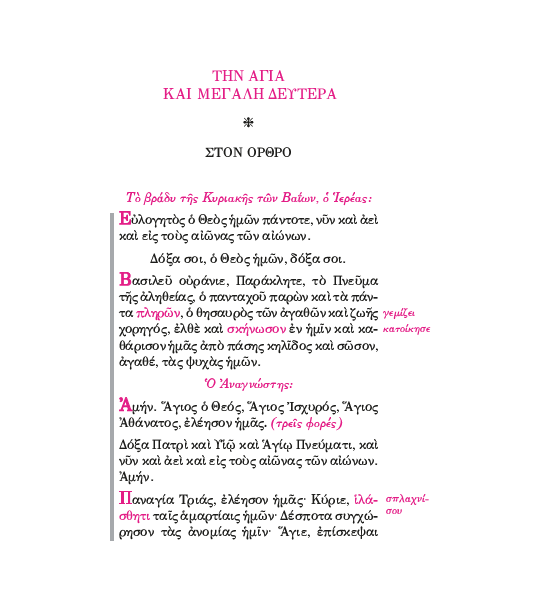 ΤΗΝ ΑΓΙΑ
ΚΑΙ ΜΕΓΑΛΗ ΔΕΥΤΕΡΑ
ΣΤΟΝ ΟΡΘΡΟ
Τὸ βράδυ τῆς Κυριακῆς τῶν Βαΐων, ὁ Ἱερέας:
Εὐλογητὸς ὁ Θεὸς ἡμῶν πάντοτε, νῦν καὶ ἀεὶ
καὶ εἰς τοὺς αἰῶνας τῶν αἰώνων.
Δόξα σοι, ὁ Θεὸς ἡμῶν, δόξα σοι.
Βασιλεῦ οὐράνιε, Παράκλητε, τὸ Πνεῦμα
τῆς ἀληθείας, ὁ πανταχοῦ παρὼν καὶ τὰ πάν-
τα πληρῶν, ὁ θησαυρὸς τῶν ἀγαθῶν καὶ ζωῆς γεμίζει
χορηγός, ἐλθὲ καὶ σκήνωσον ἐν ἡμῖν καὶ κα- κατοίκησε
θάρισον ἡμᾶς ἀπὸ πάσης κηλῖδος καὶ σῶσον,
ἀγαθέ, τὰς ψυχὰς ἡμῶν.
Ὁ Ἀναγνώστης:
Ἀμήν. Ἅγιος ὁ Θεός, Ἅγιος Ἰσχυρός, Ἅγιος
Ἀθάνατος, ἐλέησον ἡμᾶς. (τρεῖς φορές)
Δόξα Πατρὶ καὶ Υἱῷ καὶ Ἁγίῳ Πνεύματι, καὶ
νῦν καὶ ἀεὶ καὶ εἰς τοὺς αἰῶνας τῶν αἰώνων.
Ἀμήν.
Παναγία Τριάς, ἐλέησον ἡμᾶς· Κύριε, ἱλά- σπλαχνί-
σθητι ταῖς ἁμαρτίαις ἡμῶν· Δέσποτα συγχώ- σου
ρησον τὰς ἀνομίας ἡμῖν· Ἅγιε, ἐπίσκεψαι